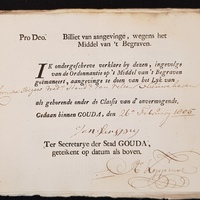 Pro Deo. Billiet van aangevinge, wegens het
Middel van 't Begraven.
IK ondergeschreve verklare by dezen, ingevolge
van de Ordonnantie op 't Middel van 't Begraven
geëmaneert, aangevinge te doen van het Lyk van
als gehorende onder de Classis van d'onvermogende.
Gedaan binnen GOUDA, den 26 February 1805
Ter Secretarye der Stad GOUDA,
geteikent op datum als boven.